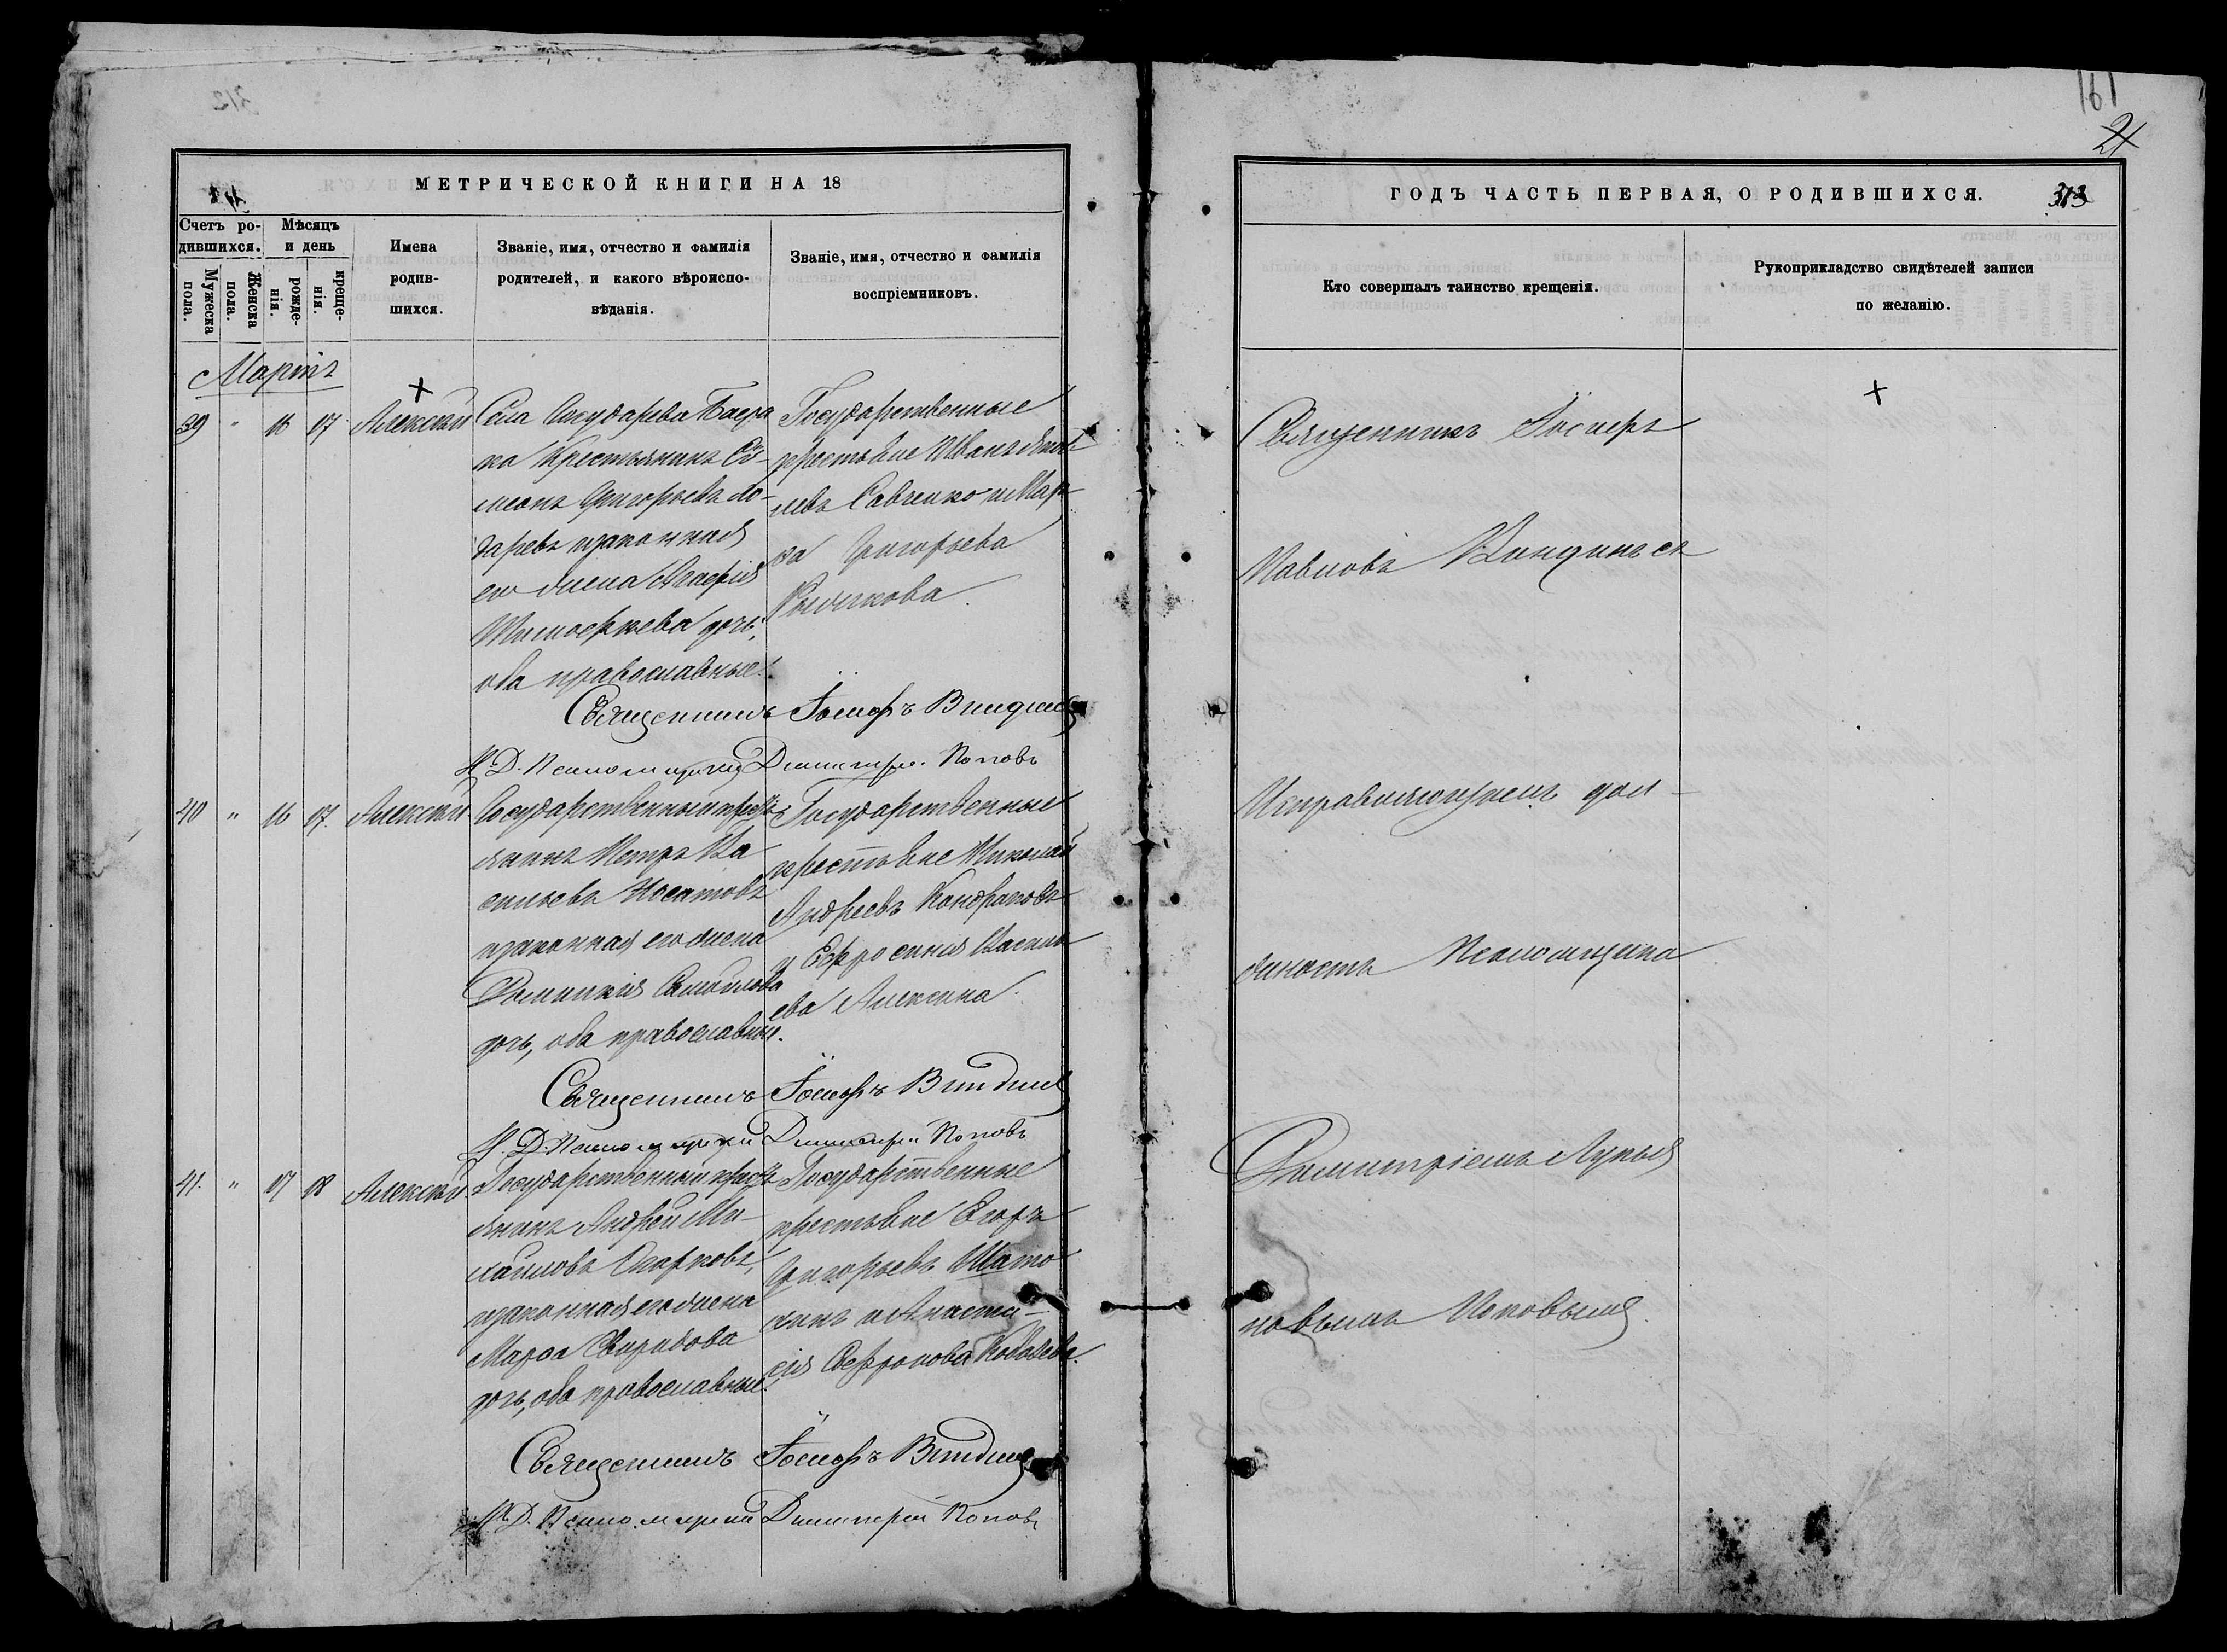 161
21
313
МЕТРИЧЕСКОЙ КНИГИ НА 18
Счетъ ро-
дившихся.
Мужеска
пола.
Женска
пола.
Мѣсяцъ
и день
рожде-
нія.
креще-
нія.
Имена
родив-
шихся.
Званіе, имя, отчество и фамилія
родителей, и какого вѣроиспо-
вѣданія.
Званіе, имя, отчество и фамилія
воспріемниковъ.
Мартъ
39 " 16 17 Алексѣй
Села Государева Баера
ка Крестьянинъ Си-
меонъ Григорьевъ
законная
его жена Агафія
Тимофеева дочь,
оба православные.
Государственные
крестьяне Иванъ Яков
левъ Савченко и Мар
ѳа Григорьева
Священникъ Іосифъ
И. Д. Псаломщика Димитрій Поповъ
40 " 16 17. Алексѣй
Государственный кресть
янинъ Петръ Ва
сильевъ Носатовъ
законная его жена
Домникія Самойлова
дочь, оба православные.
Государственные
крестьяне Николай
Андреевъ Кондратовъ
и Евфросинія Василь
ева Алехина.
Священникъ Іосифъ
И. Д. Псаломщика Димитрій Поповъ
41. " 17 18 Алексѣй.
Государственный кресть
янинъ Андрей Ми-
хайловъ Огарковъ,
законная его жена
Марѳа Свиридова
дочь, оба православные.
Государственные
крестьяне Егоръ
Григорьевъ Шато
хинъ и Анаста-
сія Софронова
Священникъ Іосифъ
И. Д. Псаломщика Димитрій Поповъ
ГОДЪ ЧАСТЬ ПЕРВАЯ, О РОДИВШИХСЯ.
Кто совершалъ таинство крещенія.
Рукоприкладство свидѣтелей записи
по желанію.
Священникъ Іосифъ
Павловъ съ
Исправляющимъ дол-
жность Псаломщика
Димитріемъ Лукья
новымъ Поповымъ.